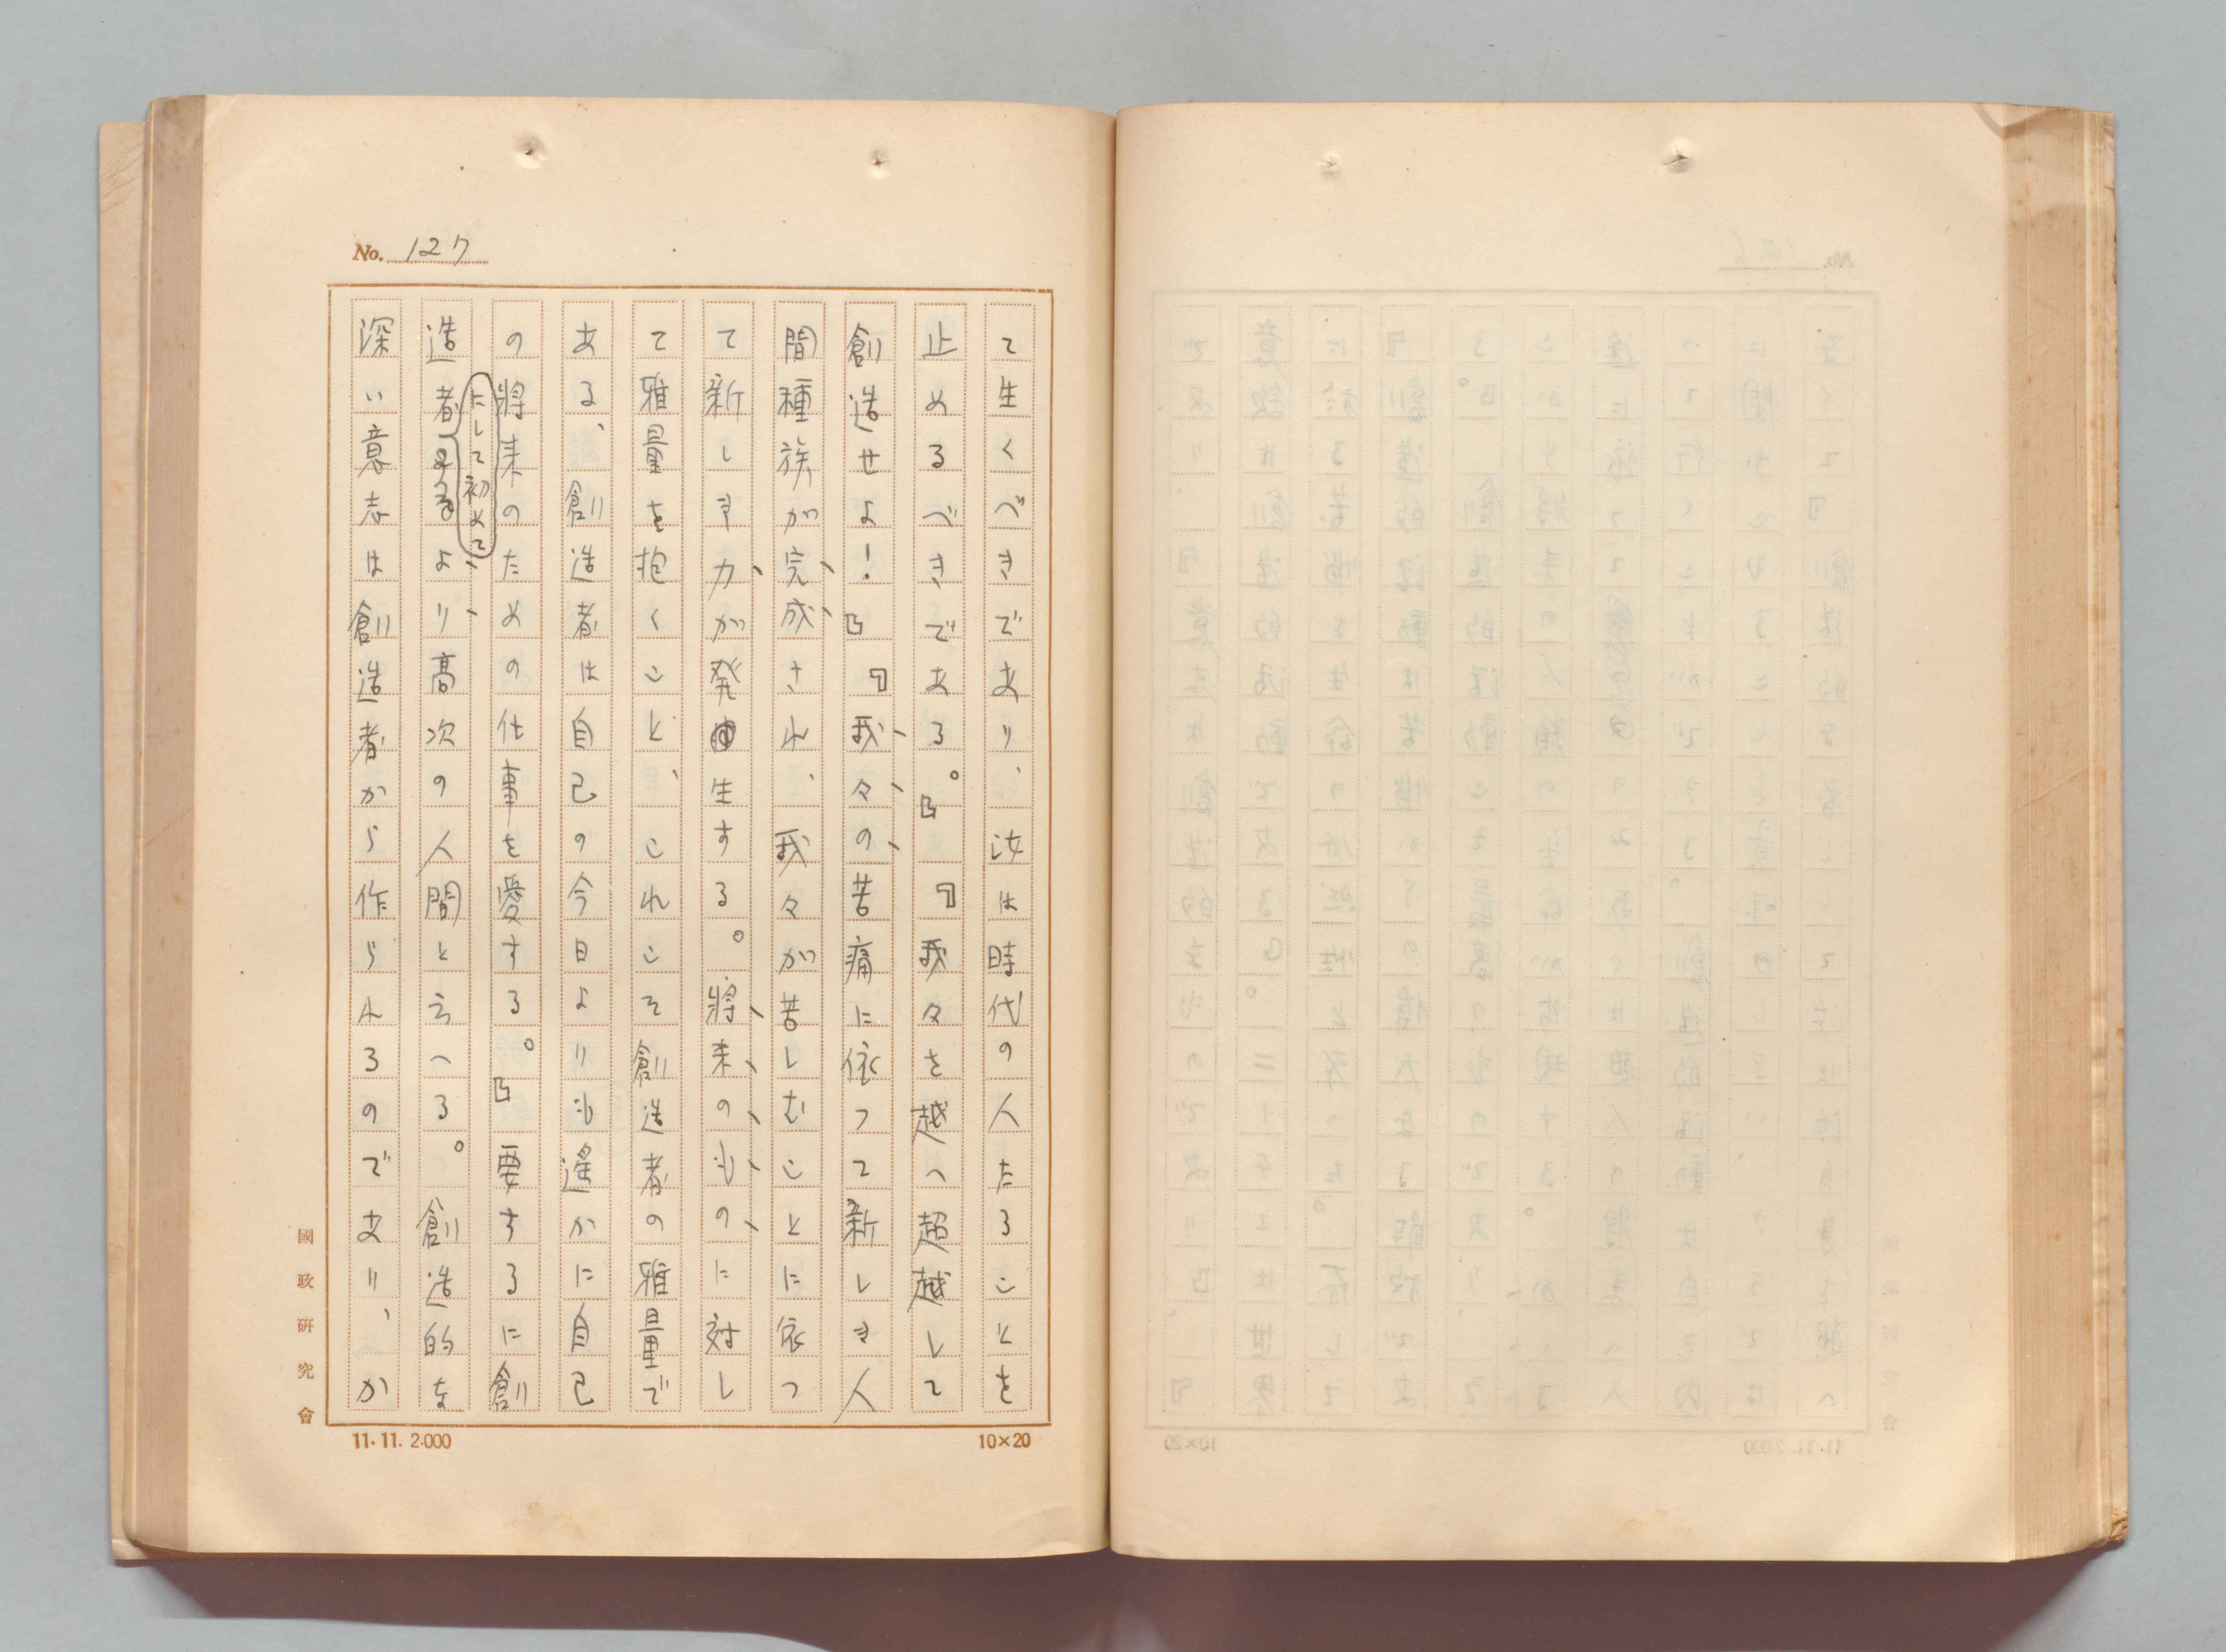 No. 127
て生くべきであり、汝は時代の人たることを
止めるべきである。』『我々を越へ超越して
創造せよ!』『我々の苦痛に依つて新しき人
間種族が完成され、我々が苦しむことに依つ
て新しき力が発生する。將来のものに対し
て雅量を抱くこと、これこそ創造者の雅量で
ある、創造者は自己の今日よりも遙かに自己
の將来のための仕事を愛する。』要するに創
造者にして初めてより高次の人間と云へる。創造的な
深い意志は創造者から作られるのであり、か
國政研究會
11.11.2.000
10×20